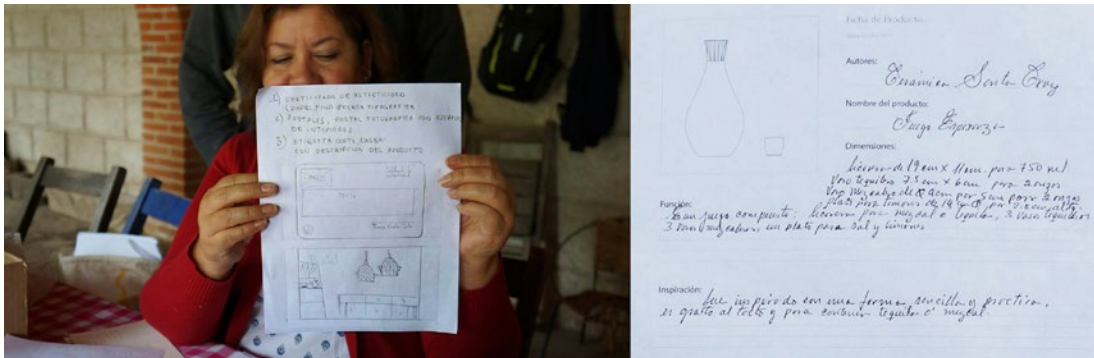 1) CERTIFICADO DE AUTENTICIDAD
(PAPEL FINO PRENSA TIPOGRAFICA
2) POSTALES, POSTAL FOTOGRAFICA
DE INTERIORES
3) ETIQUETA CORTE LASER
CON DESCRIPCION DEL PRODUCTO
TEXTO
Ficha de Producto
Autores:
Cerámica Santa Cruz
Nombre del producto:
Juego Esperanza
Dimensiones:
licorera de 19 cm x 11 cm. para 750 ml.
Vaso tequilero 7.5 cm x 6 cm para 2 onzas
Vaso mezcalero de 4 cm por 5 cm para 2 onzas
plato para limones de 14 cm por 2.5 cm alto.
Función:
Es un juego compuesto: licorera para mezcal o tequila, 3 vasos tequileros
3 vasos mezcaleros un plato para sal y limones
Inspiración:
fue inspirado con una forma sencilla y practica,
es grato al tacto y para contener tequila o' mezcal.